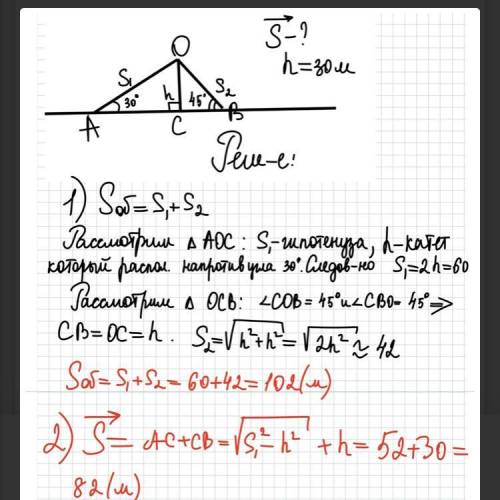 S⃗ - ?
h = 30 м
O
S₁ h S₂
30° 45°
A C B
Реш-е:
1) Sоб = S₁ + S₂
Рассмотрим △ AOC : S₁ - гипотенуза, h - катет
который распол. напротив угла 30°. Следов-но S₁ = 2h = 60
Рассмотрим △ OCB : ∠COB = 45° и ∠CBO = 45° ⇒
CB = OC = h . S₂ = √(h² + h²) = √(2h²) ≈ 42
Sоб = S₁ + S₂ = 60 + 42 = 102 (м)
2) S⃗ = AC + CB = √(S₁² - h²) + h = 52 + 30 =
82 (м)